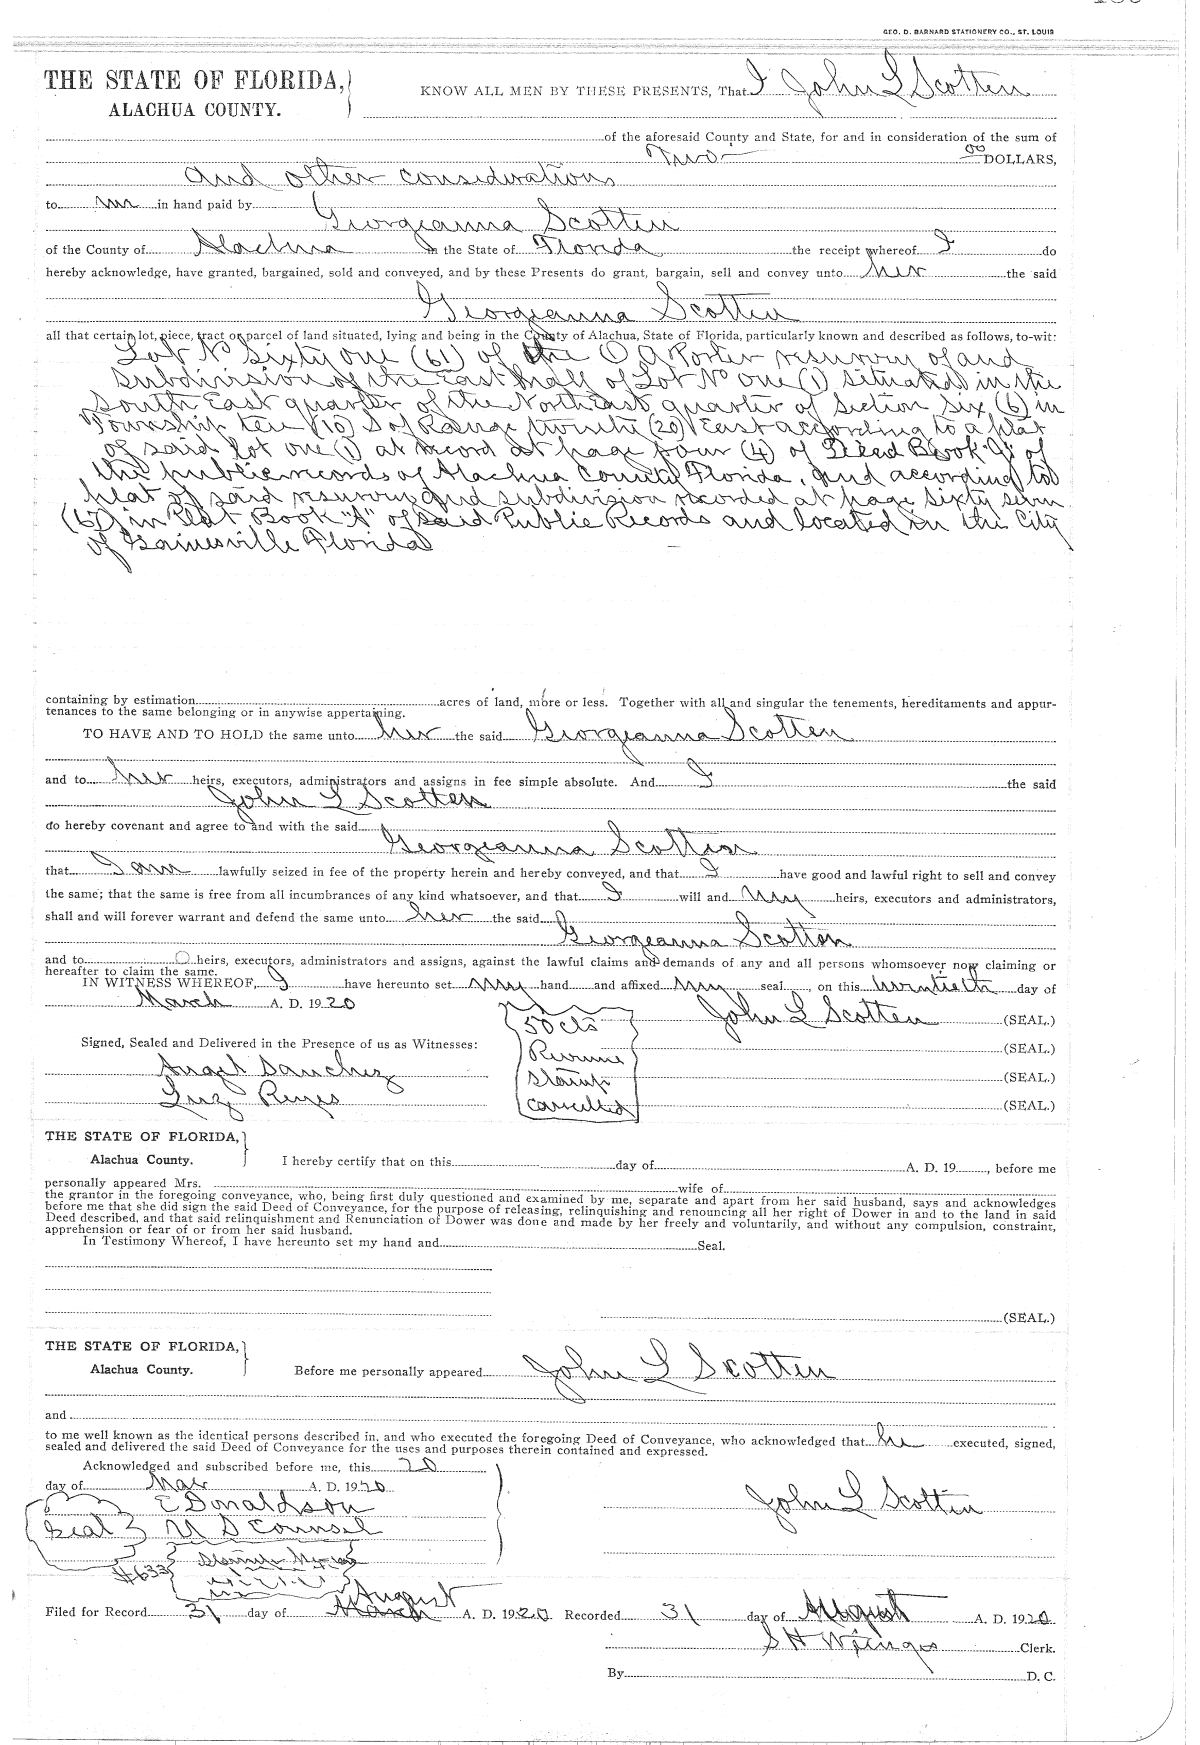 GEO. D. BARNARD STATIONERY CO., ST. LOUIS
THE STATE OF FLORIDA,
ALACHUA COUNTY.
KNOW ALL MEN BY THESE PRESENTS, That I John L Scotten
of the aforesaid County and State, for and in consideration of the sum of
Two 00 DOLLARS,
and other considerations
to me in hand paid by
Georgeanna Scotten
of the County of Alachua in the State of Florida the receipt whereof I do
hereby acknowledge, have granted, bargained, sold and conveyed, and by these Presents do grant, bargain, sell and convey unto her the said
Georgeanna Scotten
all that certain lot, piece, tract or parcel of land situated, lying and being in the County of Alachua, State of Florida, particularly known and described as follows, to-wit:
Lot No Sixty one (61) of the O A Porter resurvey of and
subdivision of the East half of Lot No one (1) situated in the
South East quarter of the North East quarter of Section six (6) in
Township ten (10) S of Range twenty (20) East according to a plat
of said lot one (1) at record at page four (4) of Deed Book "J" of
the public records of Alachua County Florida, and according to
plat of said resurvey and subdivision recorded at page sixty seven
(67) in Plat Book "A" of said Public Records and located in the City
of Gainesville Florida
containing by estimation acres of land, more or less. Together with all and singular the tenements, hereditaments and appur-
tenances to the same belonging or in anywise appertaining.
TO HAVE AND TO HOLD the same unto her the said Georgeanna Scotten
and to her heirs, executors, administrators and assigns in fee simple absolute. And I the said
John L Scotten
do hereby covenant and agree to and with the said
Georgeanna Scotten
that I am lawfully seized in fee of the property herein and hereby conveyed, and that I have good and lawful right to sell and convey
the same; that the same is free from all incumbrances of any kind whatsoever, and that I will and my heirs, executors and administrators,
shall and will forever warrant and defend the same unto her the said
Georgeanna Scotten
and to heirs, executors, administrators and assigns, against the lawful claims and demands of any and all persons whomsoever now claiming or
hereafter to claim the same.
IN WITNESS WHEREOF, I have hereunto set my hand and affixed my seal, on this twentieth day of
March A. D. 1920
John L Scotten (SEAL.)
50 cts
Revenue
stamp
cancelled
(SEAL.)
Signed, Sealed and Delivered in the Presence of us as Witnesses:
Angel Sanchez (SEAL.)
Luz Reyes (SEAL.)
THE STATE OF FLORIDA,
Alachua County.
I hereby certify that on this day of A. D. 19, before me
personally appeared Mrs. wife of
the grantor in the foregoing conveyance, who, being first duly questioned and examined by me, separate and apart from her said husband, says and acknowledges
before me that she did sign the said Deed of Conveyance, for the purpose of releasing, relinquishing and renouncing all her right of Dower in and to the land in said
Deed described, and that said relinquishment and Renunciation of Dower was done and made by her freely and voluntarily, and without any compulsion, constraint,
apprehension or fear of or from her said husband.
In Testimony Whereof, I have hereunto set my hand and Seal.
(SEAL.)
THE STATE OF FLORIDA,
Alachua County.
Before me personally appeared John L Scotten
and
to me well known as the identical persons described in, and who executed the foregoing Deed of Conveyance, who acknowledged that he executed, signed,
sealed and delivered the said Deed of Conveyance for the uses and purposes therein contained and expressed.
Acknowledged and subscribed before me, this 20
day of Mar A. D. 1920
E Donaldson
John L Scotten
Seal U S Counsel
#633
August
Filed for Record 31 day of March A. D. 1920 Recorded 31 day of August A. D. 1920
S H Wienges Clerk.
By D. C.